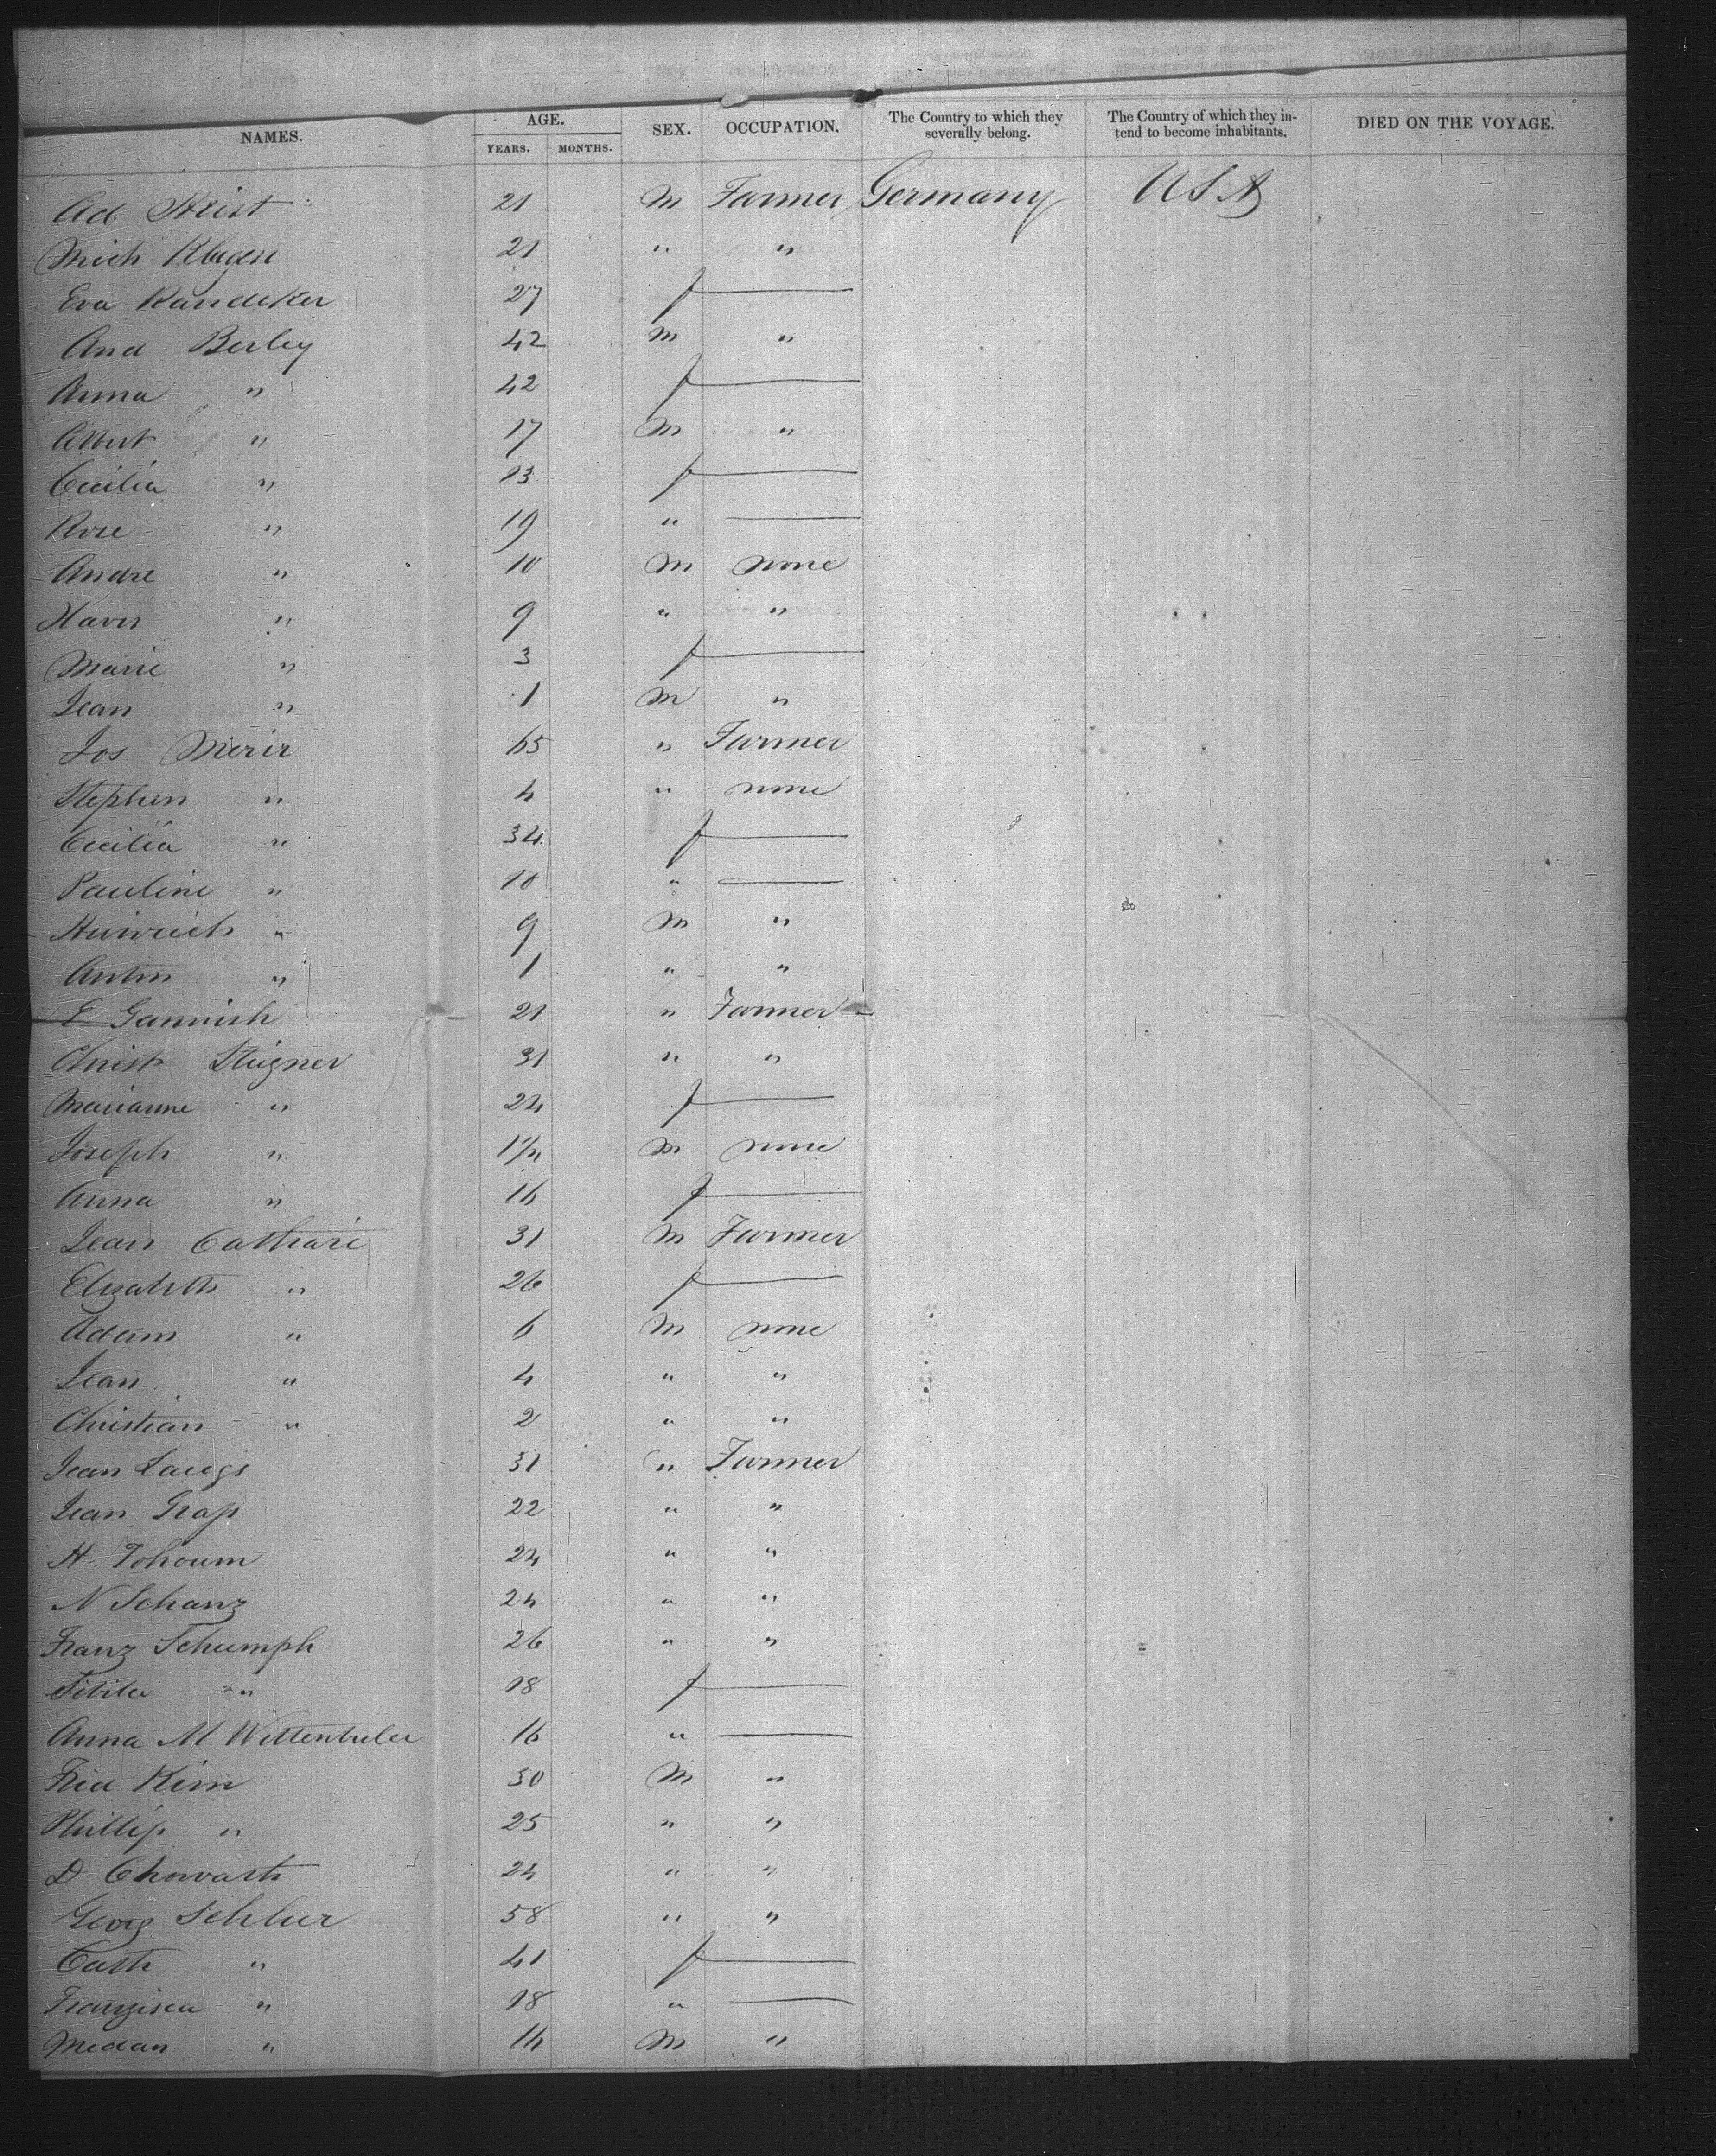 NAMES. AGE. SEX. OCCUPATION. The Country to which they severally belong. The Country of which they in-tend to become inhabitants. DIED ON THE VOYAGE.
YEARS. MONTHS.
Ad 21 M Farmer Germany USA
Mich Klugen 21 " "
Eva Randeker 27 f —
And Berley 42 M "
Anna " 42 f —
Albert " 17 M "
Cecilia " 13 f —
Rose " 19 " —
Andre " 10 M none
Xaver " 9 " "
Marie " 3 f —
Jean " 1 M "
Jos 65 " Farmer
Stephen " 4 " none
Cecilia " 34 f —
Pauline " 10 " —
Heinrich " 9 M "
Anton " 1 " "
E Gannish 21 " Farmer
Christ Steigner 31 " "
Marianne " 24 f —
Joseph " M none
Anna " 16 f —
Jean 31 M Farmer
Elizabeth " 26 f —
Adam " 6 M none
Jean " 4 " "
Christian " 2 " "
Jean 31 " Farmer
Jean 22 " "
H 24 " "
N Schanz 24 " "
Franz Schumph 26 " "
" 18 f —
Anna M 16 " —
Fred 30 M "
Phillip " 25 " "
D 24 " "
Georg 58 " "
Cath " 41 f —
Franzisca " 18 " —
" M "